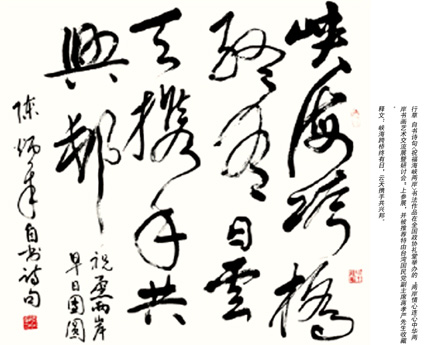 行草 自书诗句《祝福海峡两岸》书法作品在全国政协礼堂举办的《两岸情心连心中华两
岸书画艺术交流展暨研讨会。上参展，并被推荐特由台湾国民党副主席蒋孝严先生收藏
释文：峡海跨桥终有日，云天携手共兴邦.
峡海跨橋
終有日雲
天携手共
興邦
祝愿兩岸
早日團圓
陈炳 自书诗句